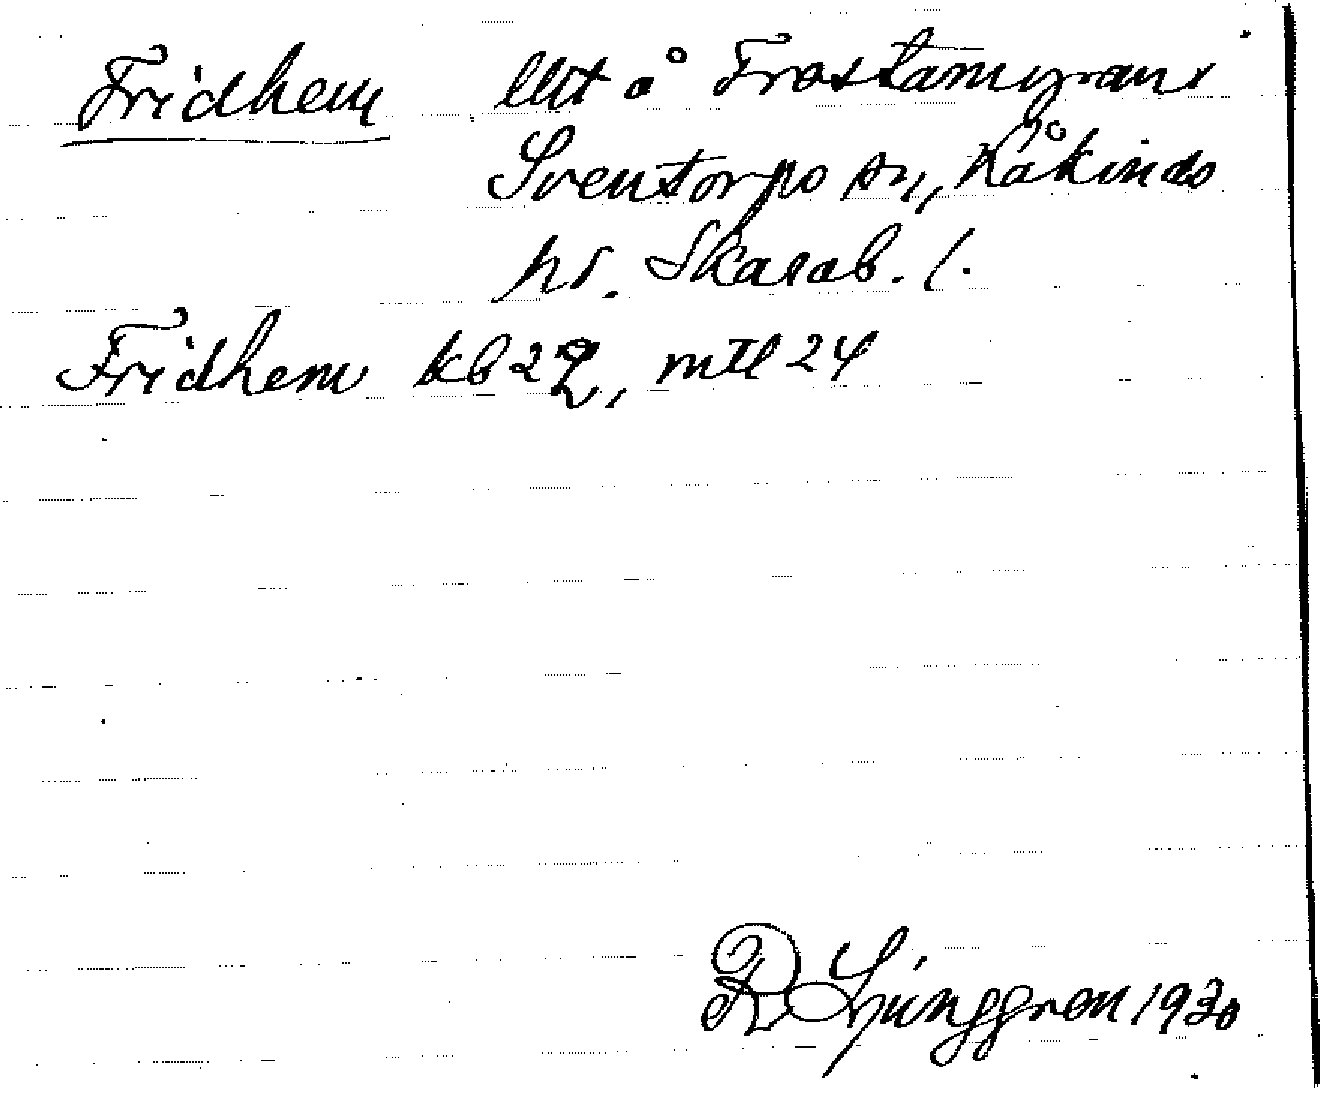 Fridhem lllt å Frostamyrans
Sventorps sn, Kåkinds
hd. Skarab. l.
Fridhem kb 22, mtl 24
R Ljunggren 1930